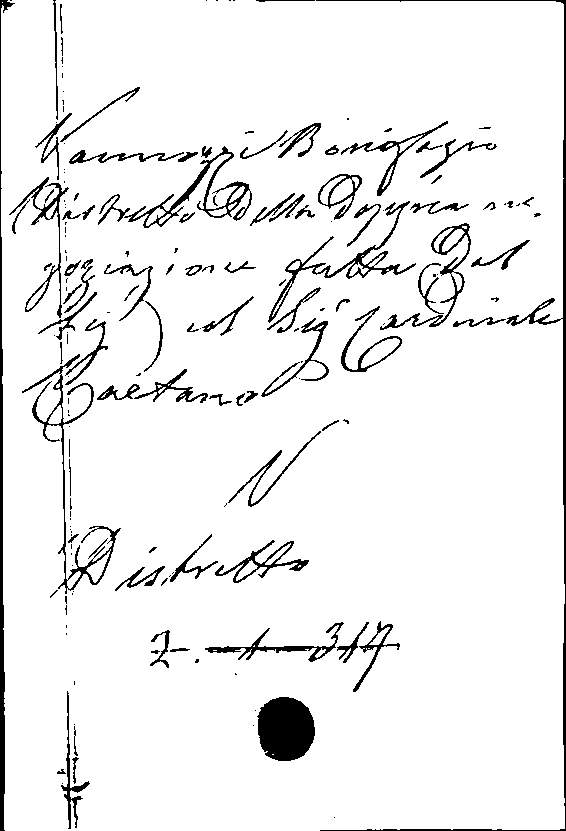 Vannozzi Bonifazio
Distretto della Doppia ne-
goziazione fatta dal
Sig.r col Sig.r Cardinale
Caetano
N
Distretto
2. 1 317